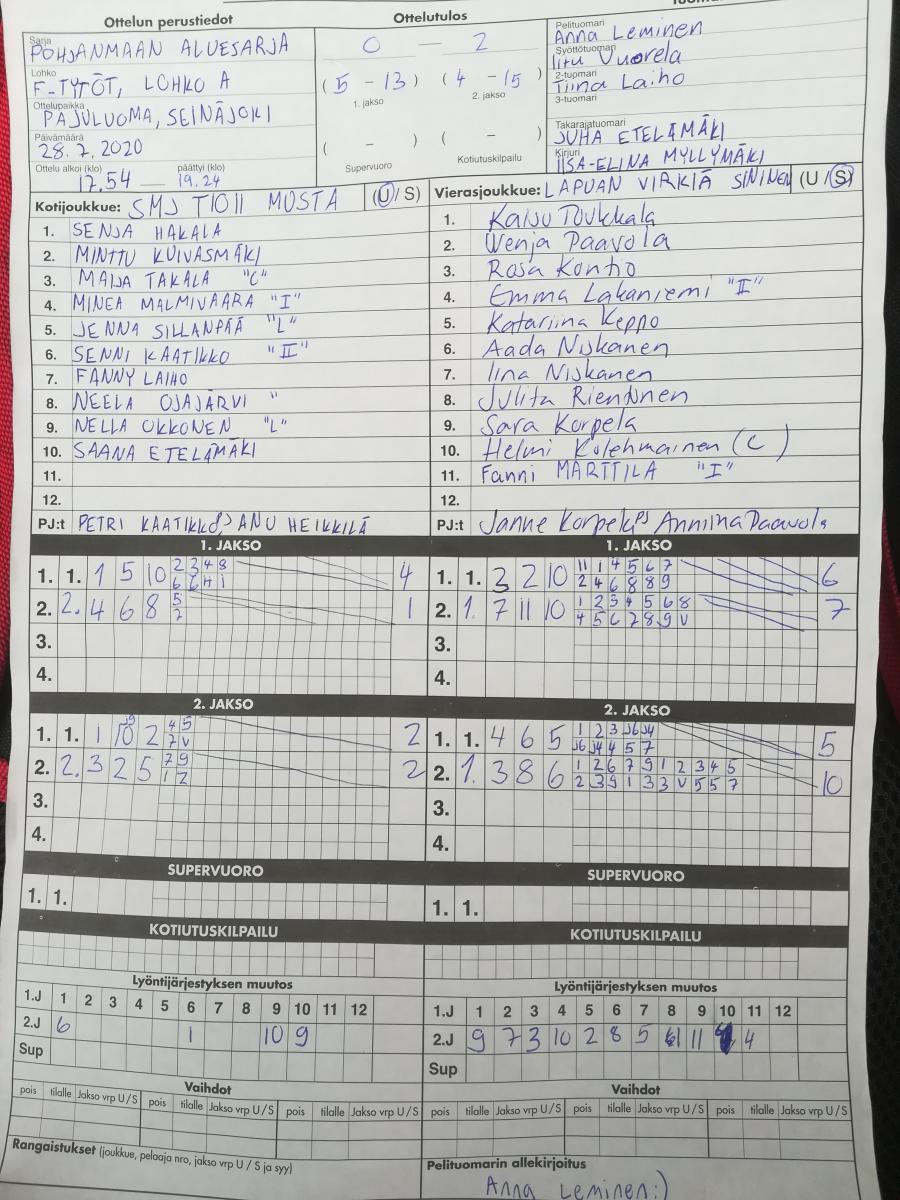 Ottelun perustiedot
Ottelutulos
Sarja
POHJANMAAN ALUESARJA
Lohko
F-TYTÖT, LOHKO A
Ottelupaikka
PAJULUOMA, SEINÄJOKI
Päivämäärä
28.7.2020
Ottelu alkoi (klo) päättyi (klo)
17.54 — 19.24
0 — 2
(5 - 13) (4 - 15)
1. jakso 2. jakso
( - ) ( - )
Supervuoro Kotiutuskilpailu
Pelituomari
Anna Leminen
Syöttötuomari
Iitu Vuorela
2-tuomari
Tiina Laiho
3-tuomari
Takarajatuomari
JUHA ETELÄMÄKI
Kirjuri
IISA-ELINA MYLLYMÄKI
Kotijoukkue: SMJ T1011 MUSTA (U/S)
1. SENJA HAKALA
2. MINTTU KUIVASMÄKI
3. MAIJA TAKALA "C"
4. MINEA MALMIVAARA "I"
5. JENNA SILLANPÄÄ "L"
6. SENNI KAATIKKO "II"
7. FANNY LAIHO
8. NEELA OJAJÄRVI "
9. NELLA OKKONEN "L"
10. SAANA ETELÄMÄKI
11.
12.
PJ:t PETRI KAATIKKO, ANU HEIKKILÄ
Vierasjoukkue: LAPUAN VIRKIÄ SININEN (U/S)
1. Kaisu Toukkala
2. Wenja Paavola
3. Rosa Kontio
4. Emma Lakaniemi "II"
5. Katariina Keppo
6. Aada Niskanen
7. Iina Niskanen
8. Julita
9. Sara Korpela
10. Helmi Kolehmainen (C)
11. Fanni MARTTILA "I"
12.
PJ:t Janne Korpela Anniina Paavola
1. JAKSO
1. 1. 1 5 10 2 3 4 8 4
2. 2. 4 6 8 5 1
7
3.
4.
1. JAKSO
1. 1. 3 2 10 11 1 4 5 6 7 6
2 4 6 8 8 9
2. 1. 7 11 10 1 2 3 4 5 6 8 7
4 5 6 7 8 9 V
3.
4.
2. JAKSO
1. 1. 1 10 2 4 5 2
7 V
2. 2. 3 2 5 7 9 2
1 2
3.
4.
2. JAKSO
1. 1. 4 6 5 1 2 3 J6 J4 5
J6 J4 4 5 7
2. 1. 3 8 6 1 2 6 7 9 1 2 3 4 5 10
2 3 9 1 3 3 V 5 5 7
3.
4.
SUPERVUORO
1. 1.
SUPERVUORO
1. 1.
KOTIUTUSKILPAILU
KOTIUTUSKILPAILU
Lyöntijärjestyksen muutos
1.J 1 2 3 4 5 6 7 8 9 10 11 12
2.J 6 1 10 9
Sup
Lyöntijärjestyksen muutos
1.J 1 2 3 4 5 6 7 8 9 10 11 12
2.J 9 7 3 10 2 8 5 11 4
Sup
Vaihdot
pois tilalle Jakso vrp U/S pois tilalle Jakso vrp U/S pois tilalle Jakso vrp U/S
Vaihdot
pois tilalle Jakso vrp U/S pois tilalle Jakso vrp U/S pois tilalle Jakso vrp U/S
Rangaistukset (joukkue, pelaaja nro, jakso vrp U / S ja syy)
Pelituomarin allekirjoitus
Anna Leminen:)